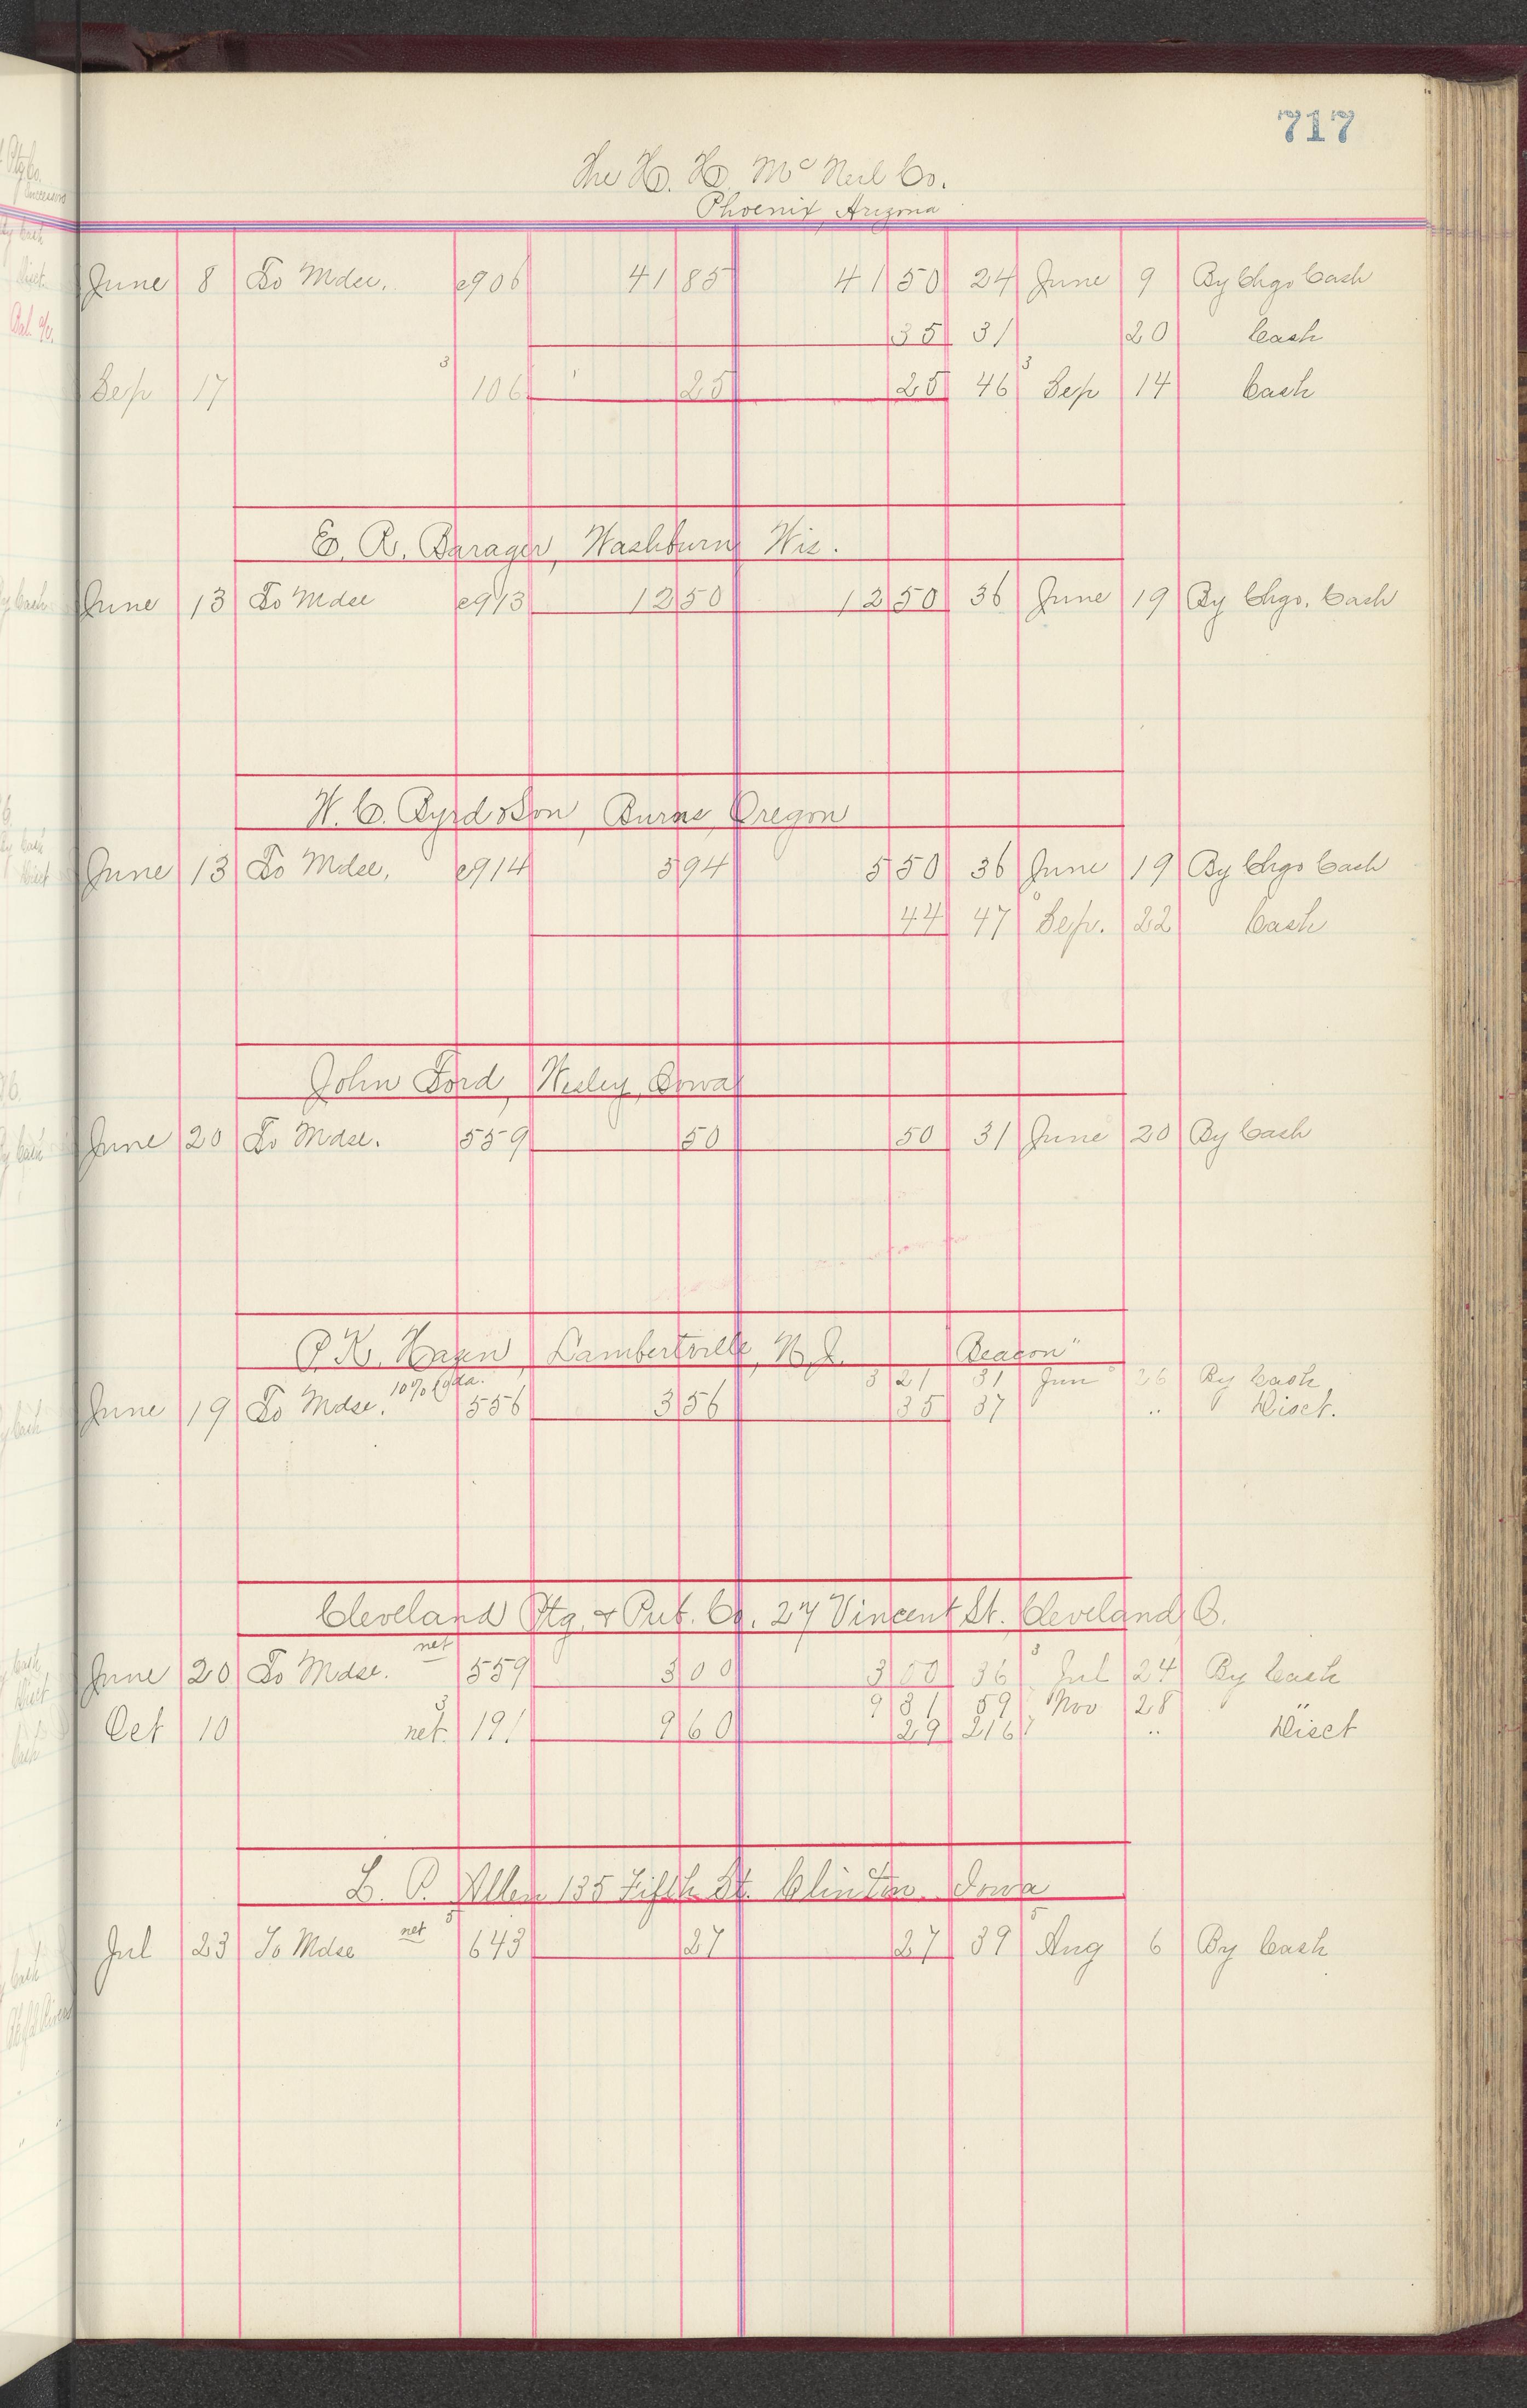 717
The H. H. McNeil Co.
Phoenix, Arizona
June 8 To Mdse. c906 41 85 41 50 24 June 9 By Chgo Cash
35 31 20 Cash
Sep 17 3 106 25 25 46 3 Sep 14 Cash
E. R. Barager, Washburn Wis.
June 13 To Mdse c913 12 50 12 50 36 June 19 By Chgo. Cash
W. C. Byrd & Son, Burns, Oregon
June 13 To Mdse. c914 5 94 5 50 36 June 19 By Chgo Cash
44 47 Sep. 22 Cash
John Ford, Wesley, Iowa
June 20 To Mdse. 559 50 50 31 June 20 By Cash
P. K. Hazen, Lambertville, N. J. "Beacon"
3 21 31 Jun 26 By Cash
June 19 To Mdse. 10% 556 3 56 35 37 .. " Disct.
Cleveland Ptg. & Pub. Co. 27 Vincent St. Cleveland, O.
June 20 To Mdse. net 559 3 00 3 00 36 3 Jul 24 By Cash
9 31 59 Nov 28 "
Oct 10 net. 3 191 9 60 29 216 .. Disct
L. P. Allen 135 Fifth St. Clinton Iowa
Jul 23 To Mdse net 643 27 27 39 Aug 6 By Cash